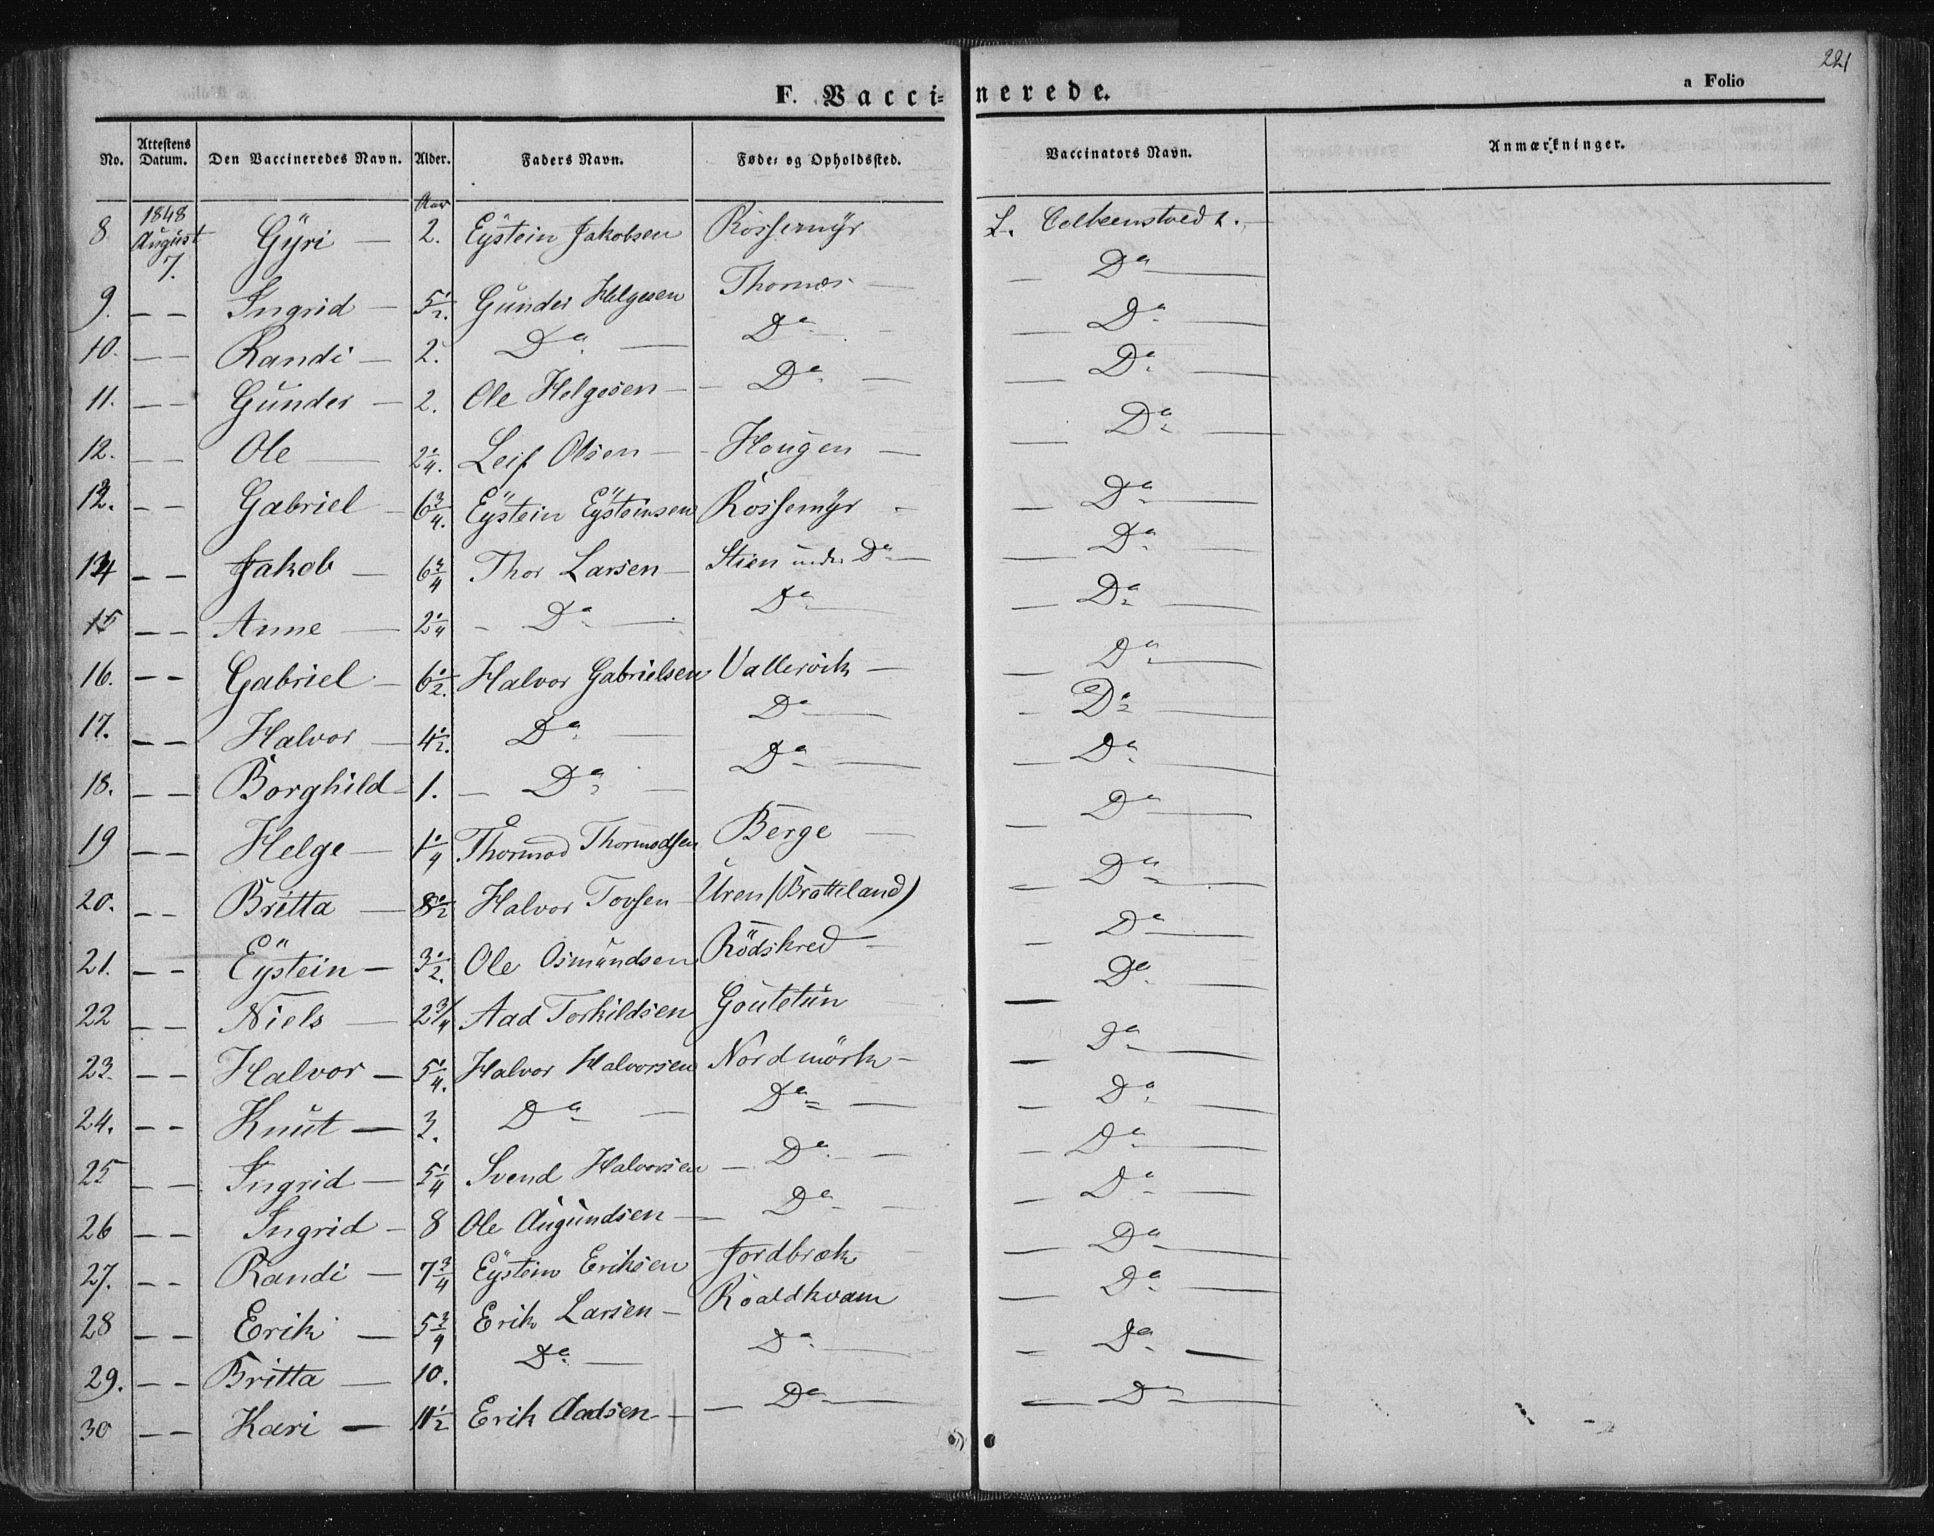 221
F. Vaccinerede.
a Folio
No. Attestens Datum. Den Vaccineredes Navn. Alder. Faders Navn. Føde- og Opholdssted. Vaccinators Navn. Anmærkninger.
8 1848 August 7. Gÿri — 2. Eÿstein Jakobsen Rossemÿr L.
9. — — Ingrid — 5 1/2. Gunder Helgesen Thornæs — — Do —
10. — — Randi — 2. Do — Do — — Do —
11. — — Gunder — 2. Ole Helgesen — — Do — — Do —
12. — — Ole — 2 1/4. Leif Olsen — Hougen — — Do —
13. — — Gabriel — 6 3/4. Eÿstein Eÿsteinsen Rossemÿr — — Do —
14 — — Jakob — 6 3/4 Thor Larsen — Stien under Do — — Do —
15 — — Anne — 2 1/4 — Do — Do — — Do —
16. — — Gabriel — 6 1/2. Halvor Gabrielsen Vallevik — — Do —
17. — — Halvor — 4 1/2. Do — Do — — Do —
18. — — Borghild — 1. — Do — Do — — Do —
19 — — Helge — 1 1/4 Thormod Thormodsen Berge — — Do —
20. — — Britta — 8 1/2 Halvor Tovsen Uren (Bratteland) — Do —
21. — — Eÿstein — 3 1/2. Ole Osmundsen Rödskred — — Do —
22 — — Niels — 2 3/4 Aad Torkildsen Goutetun — Do —
23. — — Halvor — 5 1/4. Halvor Halvorsen Nordmörk — — Do —
24. — — Knut — 3. Do — Do — — Do —
25 — — Ingrid — 5 1/4 Svend Halvorsen — Do — — Do —
26 — — Ingrid — 8 Ole Augundsen — Do — — Do —
27. — — Randi — 7 3/4 Eÿstein Eriksen Jordbræk — Do —
28 — — Erik — 5 3/4 Erik Larsen — Roaldkvam — Do —
29. — — Britta — 10. Do — Do — — Do —
30 — — Kari — 11 1/2 Erik Aadsen — — Do — — Do —